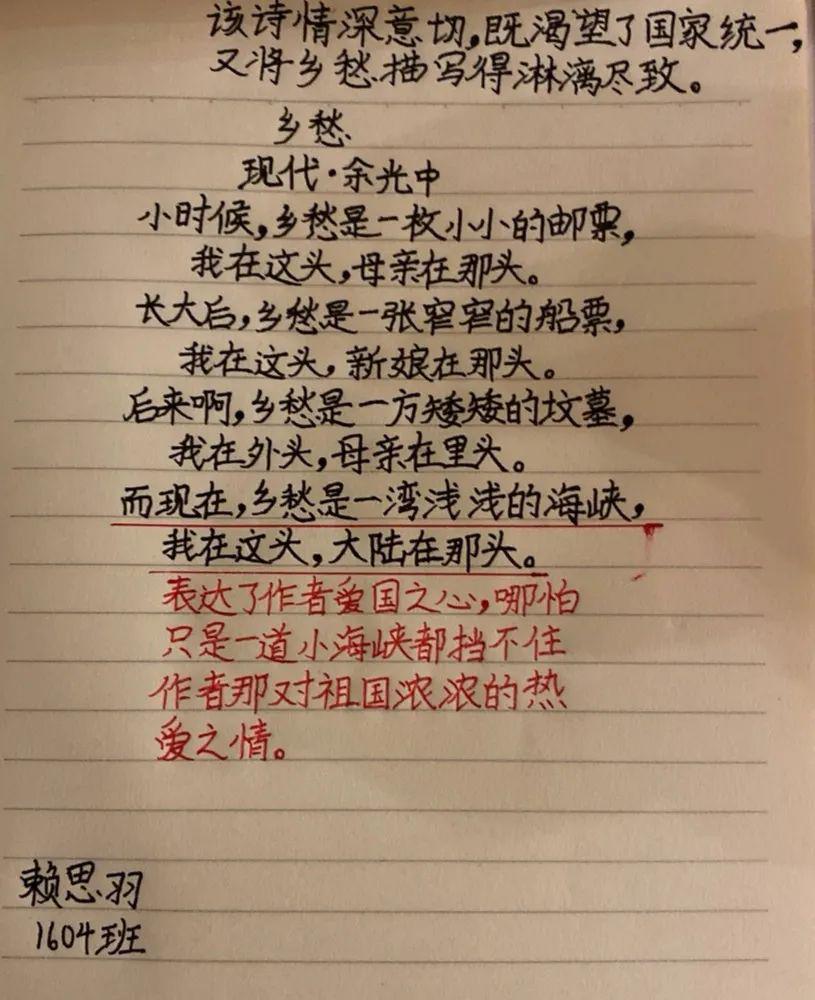 该诗情深意切,既渴望了国家统一,
又将乡愁描写得淋漓尽致。
乡愁
现代·余光中
小时候,乡愁是一枚小小的邮票,
我在这头,母亲在那头。
长大后,乡愁是一张窄窄的船票,
我在这头,新娘在那头。
后来啊,乡愁是一方矮矮的坟墓,
我在外头,母亲在里头。
而现在,乡愁是一湾浅浅的海峡,
我在这头,大陆在那头。
表达了作者爱国之心,哪怕
只是一道小海峡都挡不住
作者那对祖国浓浓的热
爱之情。
赖思羽
1604班